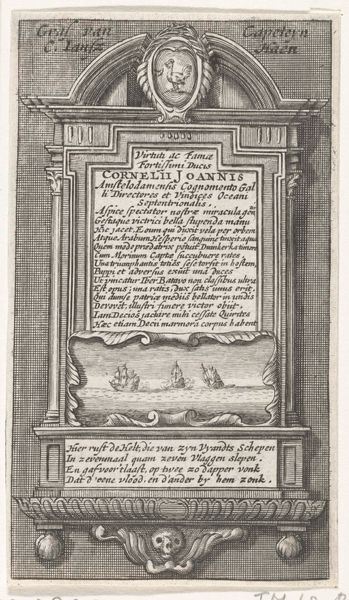 Graf van Capiteyn
C. Iansz Haen
Virtuti ac Famæ
Fortissimi Ducis
CORNELII JOANNIS
Amstelodamensis Cognomento Gal
li Directores et Vindices Oceani
Septentrionalis.
Aspice spectator nostræ miracula gen
Gestaque victrici bella stupenda manu
Hic jacet, Eoum qui duxit vela per orbem
Atque Arabum Hesperio sanguine tinxit aqua
Quem modo prædatrix petuit Dunkerka
Cum Morinum Capta succubuere rates
Una triumphantis toties sese torsit in hostem
Puppi et adversus exiit una duces
Ut pincatur Iber Batavo non classibus ultra
Est opus; una rates, dux satis unus erit.
Qui dum se patriæ mediis bellator in undis
Devovet, illustri funere victor obiit.
Iam Decios jactare mihi cessate Quirites
Hæc etiam Decii marmora corpus habent
Hier rust de Helt, die van zyn Vyandts Schepen
In zevenmaal quam zeven Vlaggen slepen.
En gaf voor 't laast, op twee zo dapper vonk
Dat d'eene vlood, en d'ander by hem zonk.